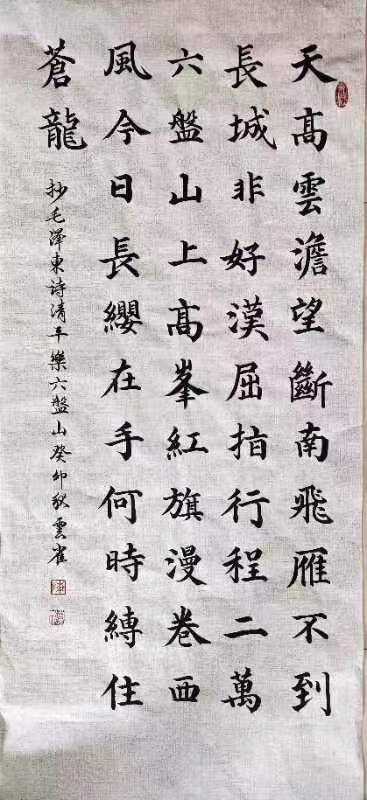 天高雲澹望斷南飛雁不到
長城非好漢屈指行程二萬
六盤山上高峯紅旗漫卷西
風今日長纓在手何時縛住
蒼龍
抄毛泽東诗清平樂六盤山癸卯秋雲雀